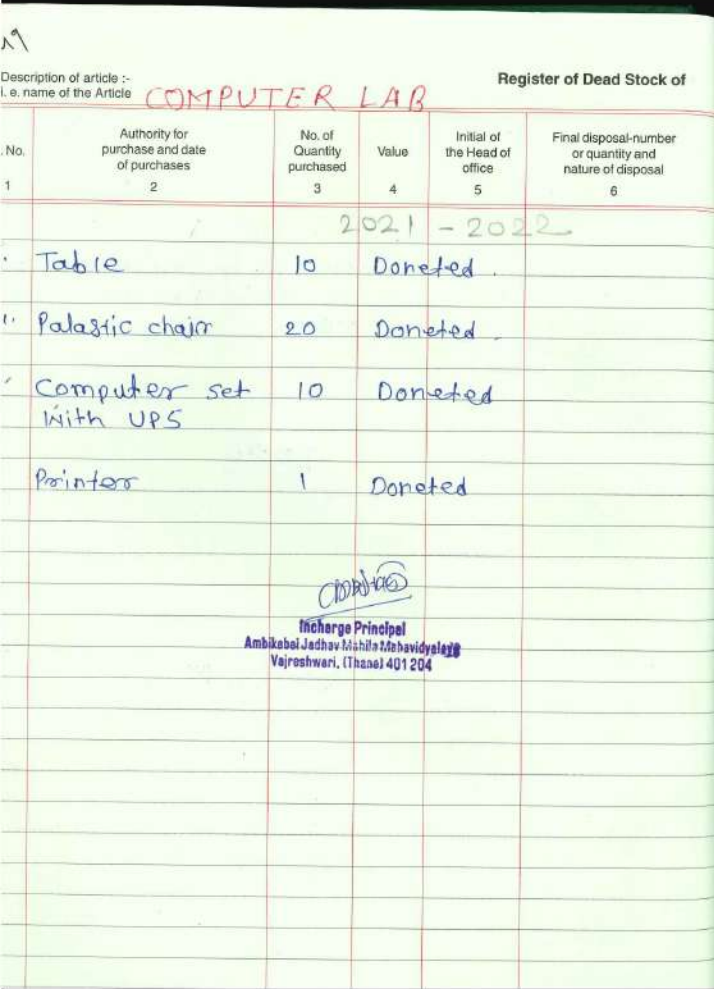 Description of article :-
Register of Dead Stock of
i. e. name of the Article COMPUTER LAB
. No. Authority for purchase and date of purchases No. of Quantity purchased Value Initial of the Head of office Final disposal-number or quantity and nature of disposal
1 2 3 4 5 6
2021 - 2022
Table 10 Doneted .
Palastic chair 20 Doneted .
Computer set 10 Doneted
With UPS
Printer 1 Doneted
Incharge Principal
Ambikabai Jadhav Mahila Mahavidyalaya
Vajreshwari, (Thane) 401 204